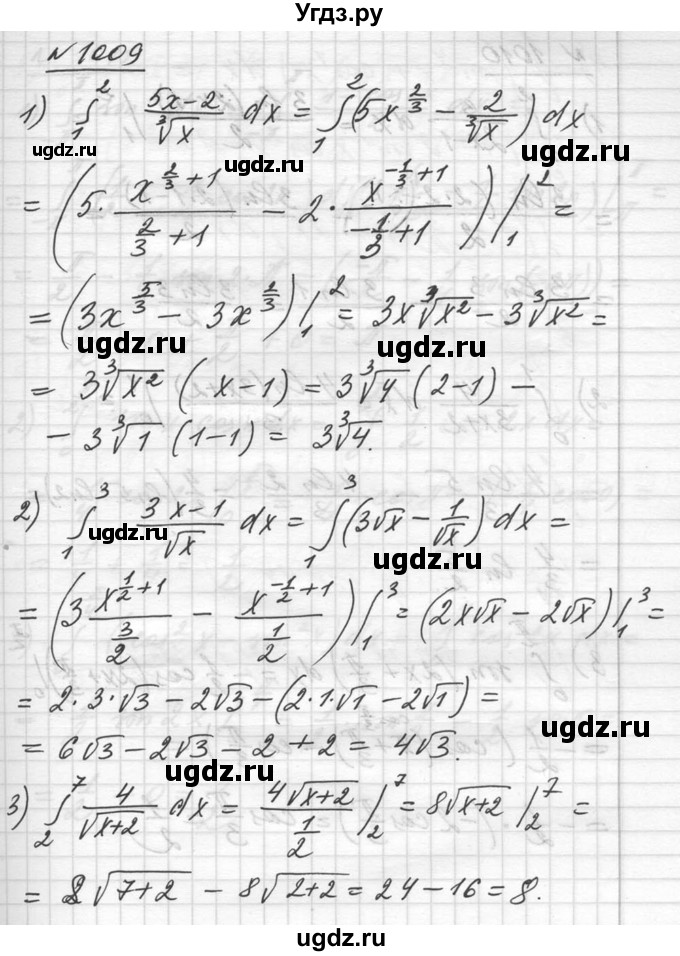 Угдз.ру
№ 1009
1) ∫₁² (5x-2)/∛x dx = ∫₁² (5x^(2/3) - 2/∛x) dx
ugdz.ru ugdz.ru ugdz.ru
= (5· x^(2/3+1)/(2/3+1) - 2· x^(-1/3+1)/(-1/3+1)) |₁² =
= (3x^(5/3) - 3x^(2/3)) |₁² = 3x∛x² - 3∛x² =
ugdz.ru ugdz.ru
= 3∛x² (x-1) = 3∛4 (2-1) -
- 3∛1 (1-1) = 3∛4.
2) ∫₁³ (3x-1)/√x dx = ∫₁³ (3√x - 1/√x) dx =
ugdz.ru ugdz.ru
= (3 x^(1/2+1)/(3/2) - x^(-1/2+1)/(1/2)) |₁³ = (2x√x - 2√x) |₁³ =
= 2·3·√3 - 2√3 - (2·1·√1 - 2√1) =
ugdz.ru
= 6√3 - 2√3 - 2 + 2 = 4√3.
ugdz.ru
3) ∫₂⁷ 4/√(x+2) dx = 4√(x+2)/(1/2) |₂⁷ = 8√(x+2) |₂⁷ =
= 8√(7+2) - 8√(2+2) = 24 - 16 = 8.
ugdz.ru ugdz.ru
ugdz.ru